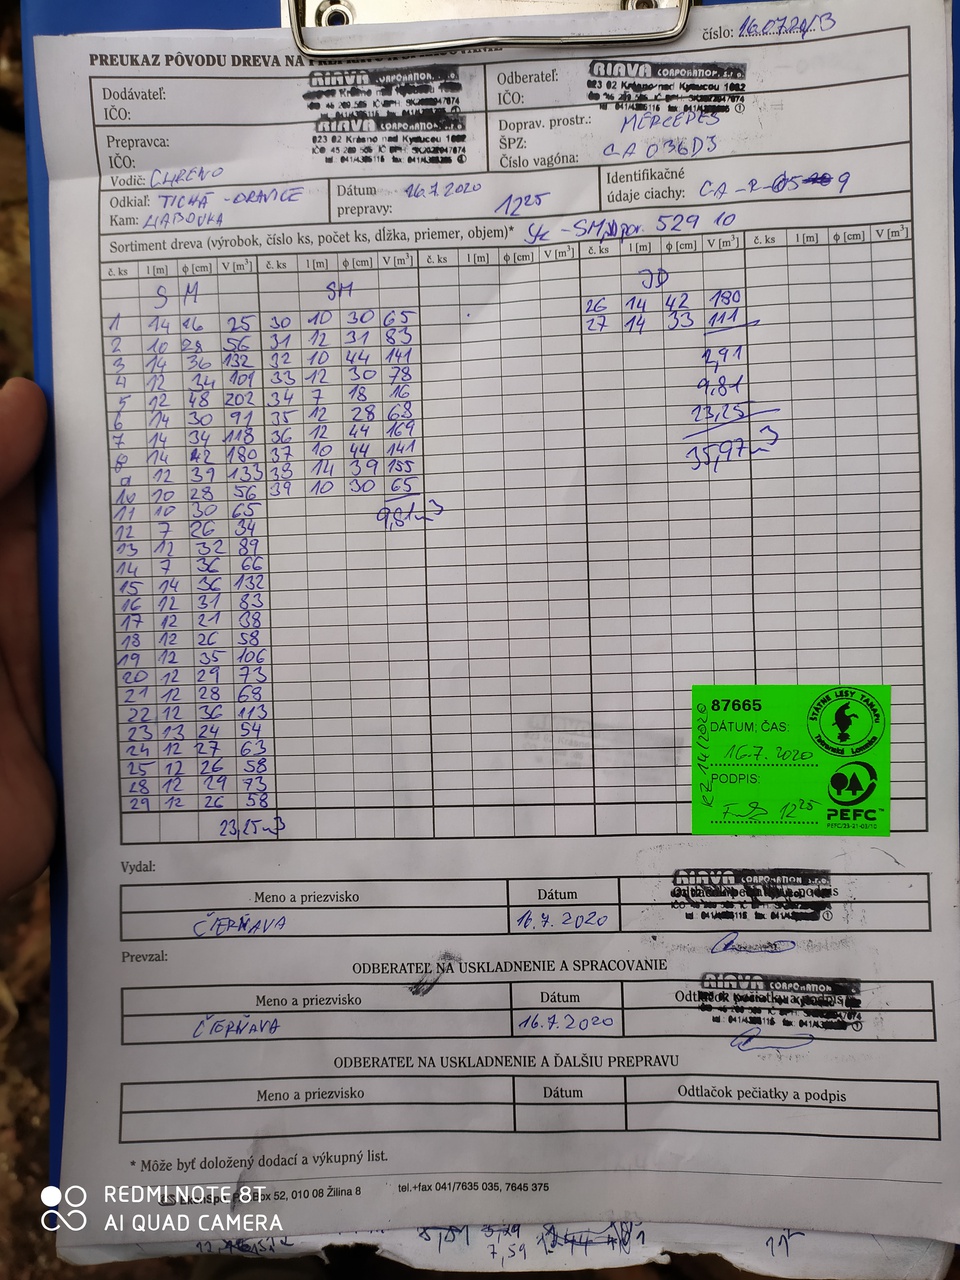 číslo: 16.07.20/3
PREUKAZ PÔVODU DREVA NA
Dodávateľ:
IČO:
RIAVA CORPORATION, s.r.o.
Odberateľ:
IČO:
RIAVA CORPORATION, s.r.o.
023 02 Krásno nad Kysucou 1682
Prepravca:
IČO:
RIAVA CORPORATION
023 02 Krásno nad Kysucou 1682
Doprav. prostr.: MERCEDES
ŠPZ: CA036DJ
Číslo vagóna:
Vodič:
Odkiaľ: TICHÁ - ORAVICE
Kam: HABOVKA
Dátum prepravy: 16.7.2020 12 25
Identifikačné údaje ciachy: CA-R-
Sortiment dreva (výrobok, číslo ks, počet ks, dĺžka, priemer, objem)* 529 10
č. ks l [m] ϕ [cm] V [m³] č. ks l [m] ϕ [cm] V [m³] č. ks l [m] ϕ [cm] V [m³] č. ks l [m] ϕ [cm] V [m³] č. ks l [m] ϕ [cm] V [m³]
SM SM JD
26 14 42 180
27 14 33 111
1 14 16 25 30 10 30 65
2 10 28 56 31 12 31 83
3 14 36 132 32 10 44 141 2,91
4 12 34 109 33 12 30 78 9,81
5 12 48 202 34 7 18 16
6 14 30 91 35 12 28 68 23,25
7 14 34 118 36 12 44 169
8 14 42 180 37 10 44 141 35,97m3
9 12 39 133 38 14 39 155
10 10 28 56 39 10 30 65
11 10 30 65 9,81m3
12 7 26 34
13 12 32 89
14 7 36 66
15 14 36 132
16 12 31 83
17 12 21 38
18 12 26 58
19 12 35 106
20 12 29 73
21 12 28 68
22 12 36 113
23 13 24 54
24 12 27 63
25 12 26 58
28 12 29 73
29 12 26 58
23,25m3
87665
DÁTUM; ČAS:
16.7.2020
PODPIS:
12 25
KZ 14/2020
ŠTÁTNE LESY TANAPU
Tatranská Lomnica
PEFC
Vydal:
Meno a priezvisko Dátum
ČIERŇAVA 16.7.2020
RIAVA CORPORATION s.r.o.
Prevzal:
ODBERATEĽ NA USKLADNENIE A SPRACOVANIE
Meno a priezvisko Dátum Odtlačok pečiatky a podpis
ČIERŇAVA 16.7.2020
RIAVA CORPORATION
ODBERATEĽ NA USKLADNENIE A ĎALŠIU PREPRAVU
Meno a priezvisko Dátum Odtlačok pečiatky a podpis
* Môže byť doložený dodací a výkupný list.
Box 52, 010 08 Žilina 8 tel.+fax 041/7635 035, 7645 375
REDMI NOTE 8T
AI QUAD CAMERA
7,59